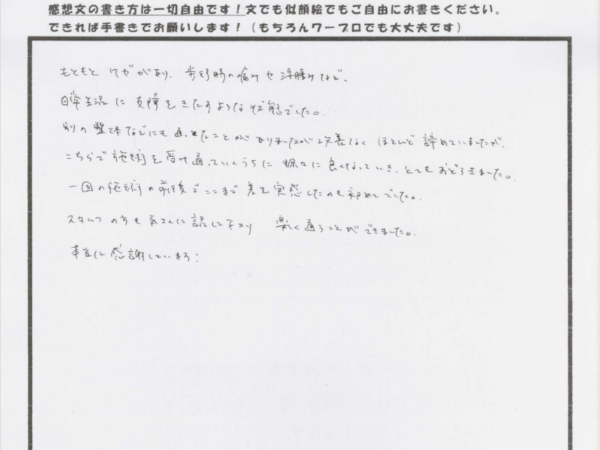 感想文の書き方は一切自由です！文でも似顔絵でもご自由にお書きください。
できれば手書きでお願いします！（もちろんワープロでも大丈夫です）
もともと ケガがあり、歩行時の痛みや浮腫みなど、
日常生活に支障をきたすような状態でした。
別の整体などにも通ったことがありましたが改善なく ほとんど諦めていましたが、
こちらで施術を受け通っていくうちに徐々に良くなっていき、とてもおどろきました。
一回の施術の前後でここまで差を実感したのも初めてでした。
スタッフの方も気さくに話して下さり 楽しく通うことができました。
本当に感謝しています！